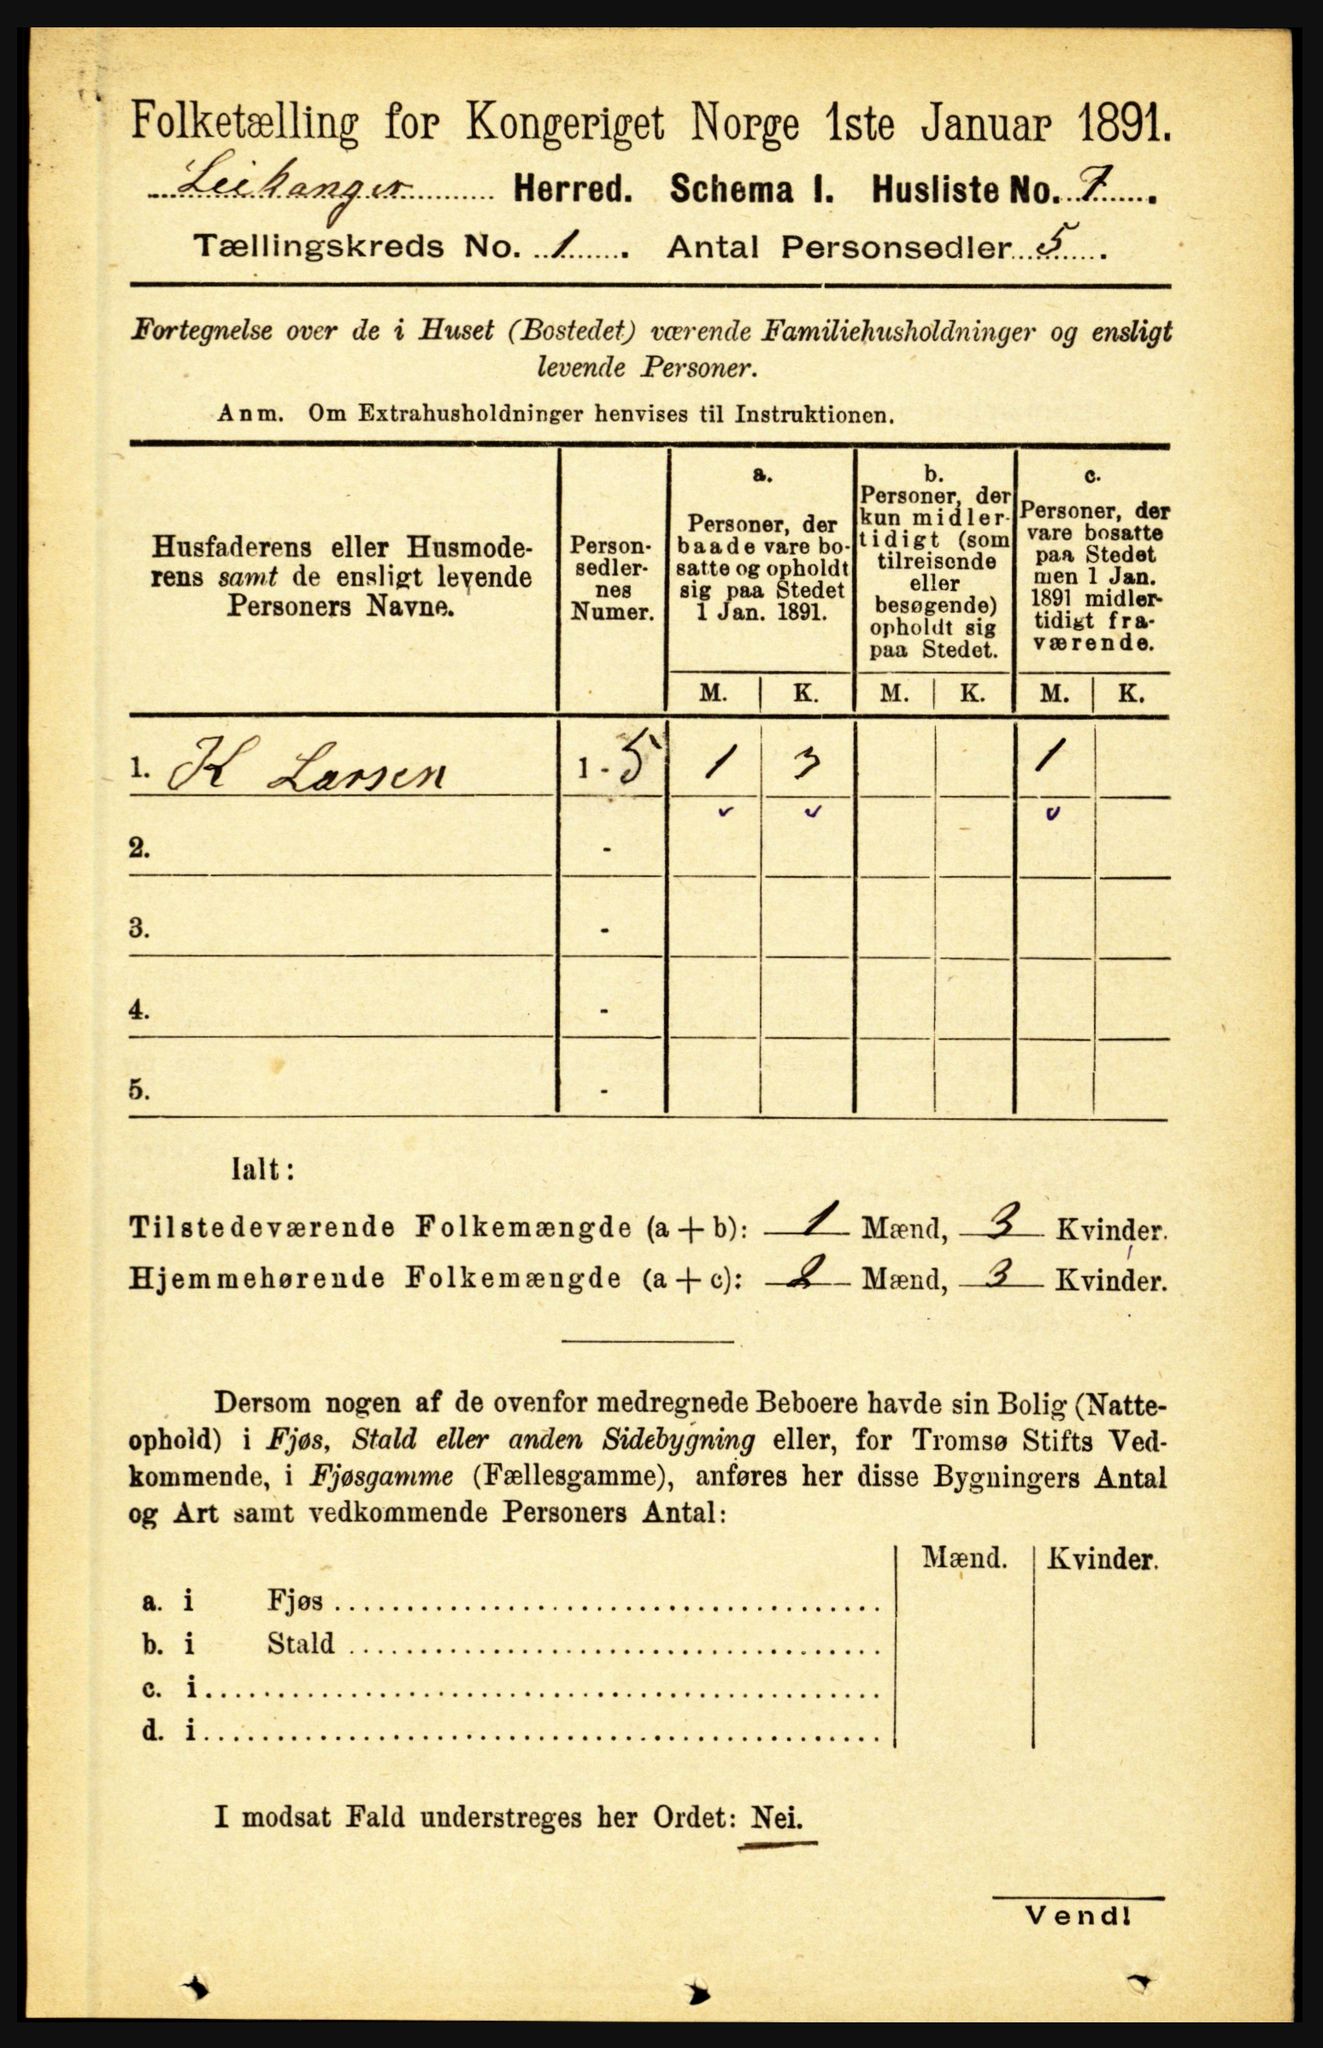 Folketælling for Kongeriget Norge 1ste Januar 1891.
Leikanger Herred. Schema I. Husliste No. 7.
Tællingskreds No. 1. Antal Personsedler 5.
Fortegnelse over de i Huset (Bostedet) værende Familiehusholdninger og ensligt
levende Personer.
Anm. Om Extrahusholdninger henvises til Instruktionen.
Husfaderens eller Husmode-
rens samt de ensligt levende
Personers Navne.
Person-
sedler-
nes
Numer.
a.
Personer, der
baade vare bo-
satte og opholdt
sig paa Stedet
1 Jan. 1891.
b.
Personer, der
kun midler-
tidigt (som
tilreisende
eller
besøgende)
opholdt sig
paa Stedet.
c.
Personer, der
vare bosatte
paa Stedet
men 1 Jan.
1891 midler-
tidigt fra-
værende.
M. K. M. K. M. K.
1. K Larsen 1 - 5 1 3 1
2. -
3. -
4. -
5. -
Ialt:
Tilstedeværende Folkemængde (a + b): 1 Mænd, 3 Kvinder.
Hjemmehørende Folkemængde (a + c): 2 Mænd, 3 Kvinder.
Dersom nogen af de ovenfor medregnede Beboere havde sin Bolig (Natte-
ophold) i Fjøs, Stald eller anden Sidebygning eller, for Tromsø Stifts Ved-
kommende, i Fjøsgamme (Fællesgamme), anføres her disse Bygningers Antal
og Art samt vedkommende Personers Antal:
Mænd. Kvinder.
a. i Fjøs
b. i Stald
c. i
d. i
I modsat Fald understreges her Ordet: Nei.
Vend!